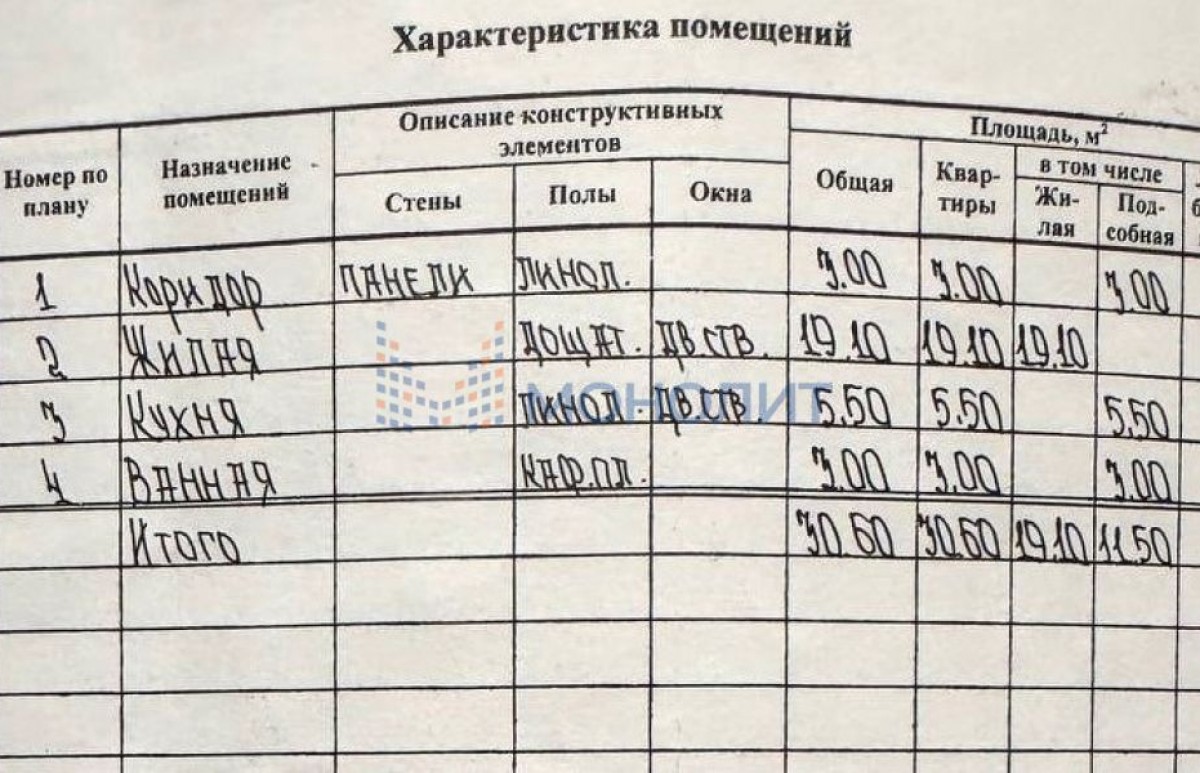 Характеристика помещений
Номер по плану Назначение помещений Описание конструктивных элементов Площадь, м²
Стены Полы Окна Общая Квар-тиры в том числе
Жи-лая Под-собная
1 Коридор ПАНЕЛИ ЛИНОЛ. 3.00 3.00 3.00
2 ЖИЛАЯ ДОЩАТ. ДВ.СТВ. 19.10 19.10 19.10
3 КУХНЯ ЛИНОЛ. ДВ.СТВ. 5.50 5.50 5.50
4 ВАННАЯ КАФ.ПЛ. 3.00 3.00 3.00
Итого 30.60 30.60 19.10 11.50
МОНОЛИТ